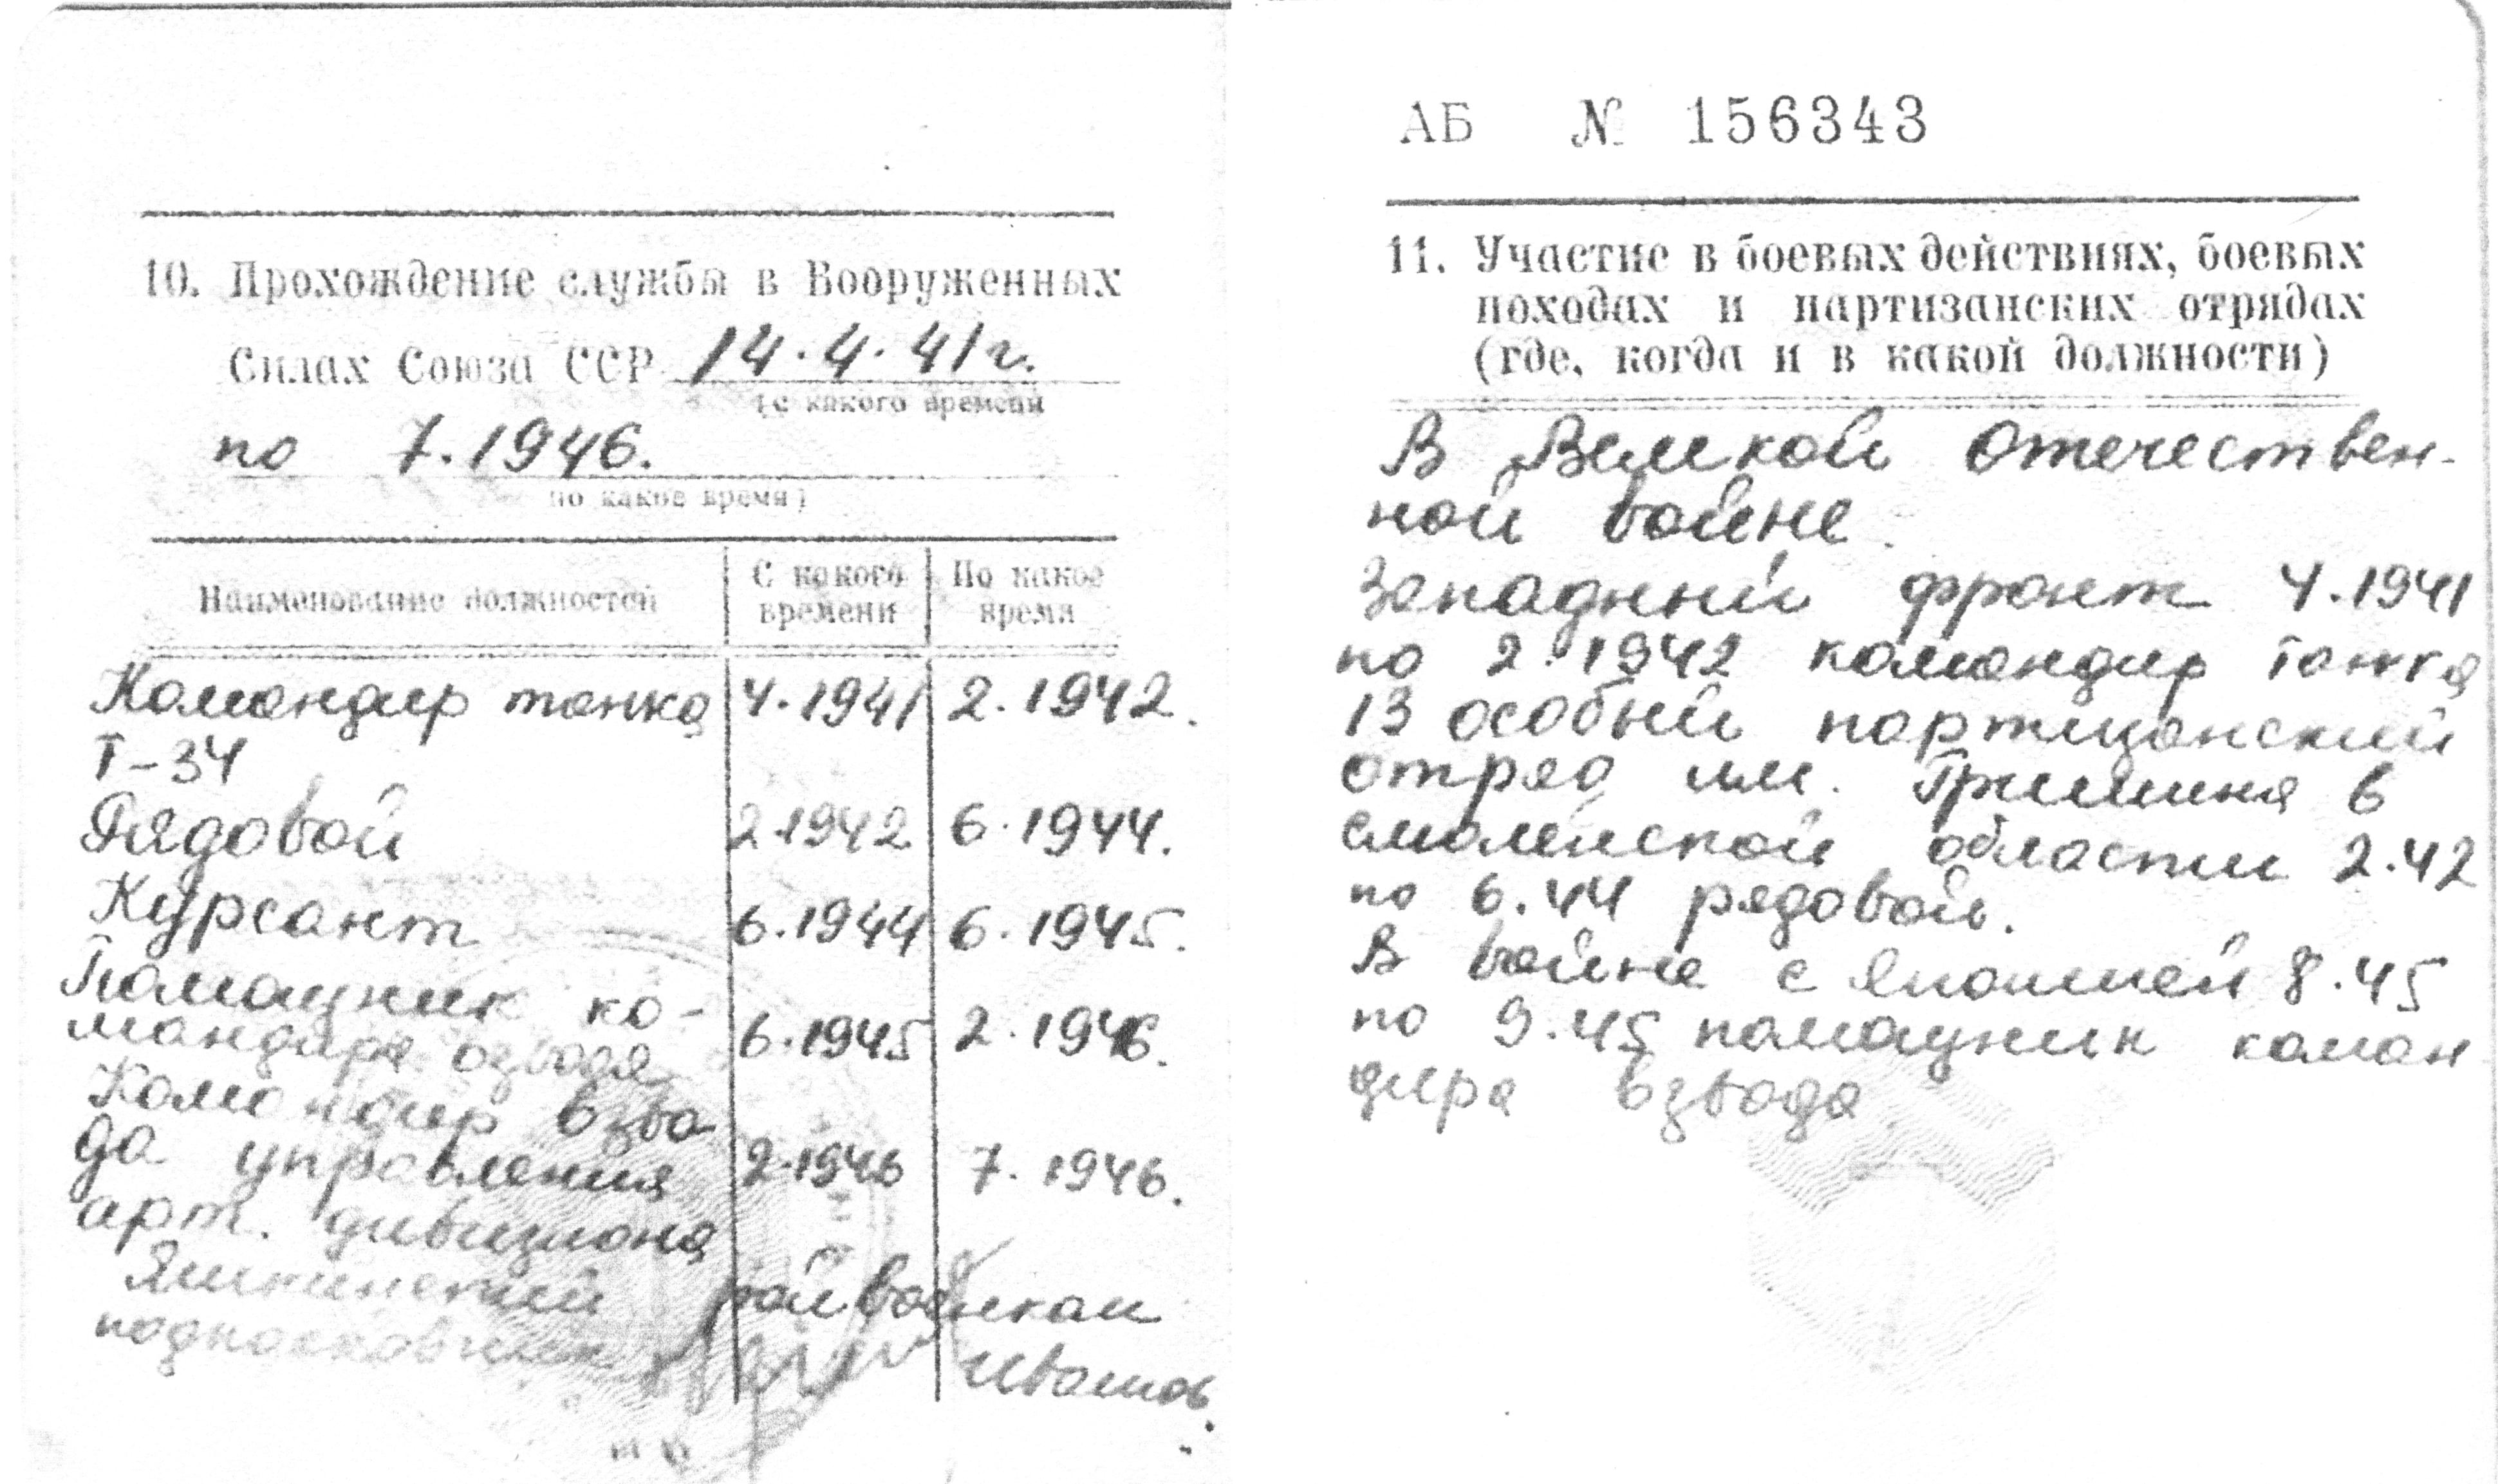 10. Прохождение службы в Вооруженных
Силах Союза ССР 14.4.41 г.
(с какого времени
по 7.1946.
по какое время)
Наименование должностей
С какого времени
По какое время
Командир танка 4.1941 2.1942.
Т-34
Рядовой 2.1942 6.1944.
Курсант 6.1944 6.1945.
Помощник ко-
мандира взвода 6.1945 2.1946.
Командир взво
да управления 2.1946 7.1946.
арт. дивизиона
Яшкинский райвоенком
подполковник Ивашов
АБ № 156343
11. Участие в боевых действиях, боевых
походах и партизанских отрядах
(где, когда и в какой должности)
В Великой Отечествен-
ной войне.
Западный фронт 4.1941
по 2.1942 командир танка
13 особый партизанский
отряд им. Гришина в
смоленской области 2.42
по 6.44 рядовой.
В войне с Японией 8.45
по 9.45 помощник коман
дира взвода